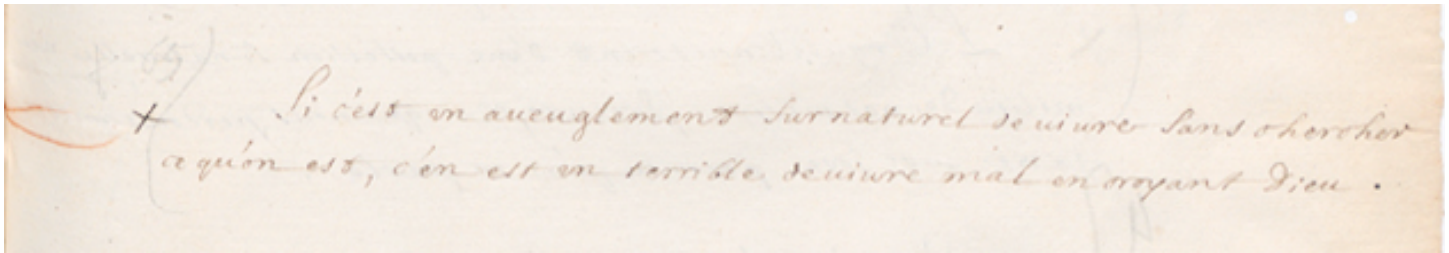 Si c'est un aueuglement surnaturel de uiure sans chercher
ce qu'on est, c'en est un terrible de uiure mal en croyant Dieu .